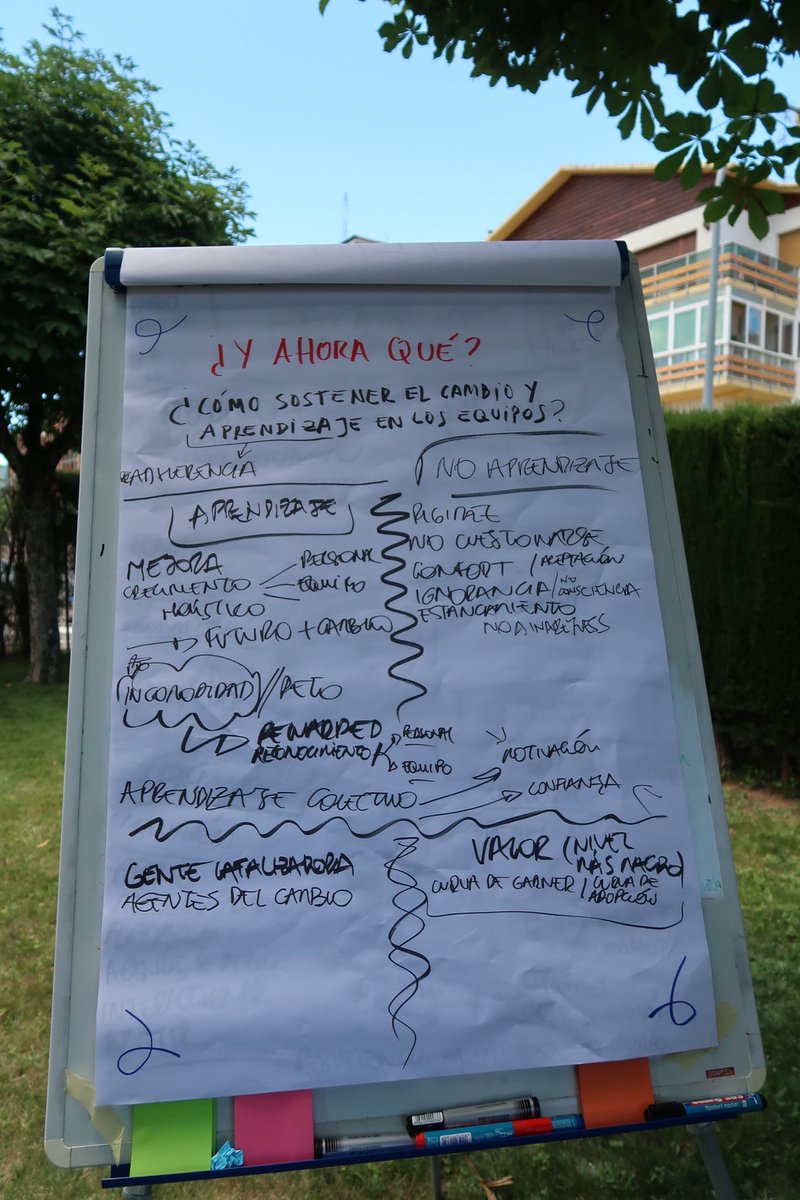 ¿Y AHORA QUÉ?
¿CÓMO SOSTENER EL CAMBIO Y
APRENDIZAJE EN LOS EQUIPOS?
ADHERENCIA
APRENDIZAJE
MEJORA
CRECIMIENTO
PERSONAL
EQUIPO
HOLÍSTICO
FUTURO + CAMBIO
INCOMODIDAD // RETO
REWARDED
RECONOCIMIENTO
PERSONAL
EQUIPO
APRENDIZAJE COLECTIVO
MOTIVACIÓN
CONFIANZA
NO APRENDIZAJE
RIGIDEZ
NO CUESTIONARSE
CONFORT / ACEPTACIÓN
IGNORANCIA / NO CONSCIENCIA
ESTANCAMIENTO
NO AWARENESS
GENTE CATALIZADORA
AGENTES DEL CAMBIO
VALOR (NIVEL
MÁS MACRO)
CURVA DE GARNER / CURVA DE
ADOPCIÓN
STAPLES